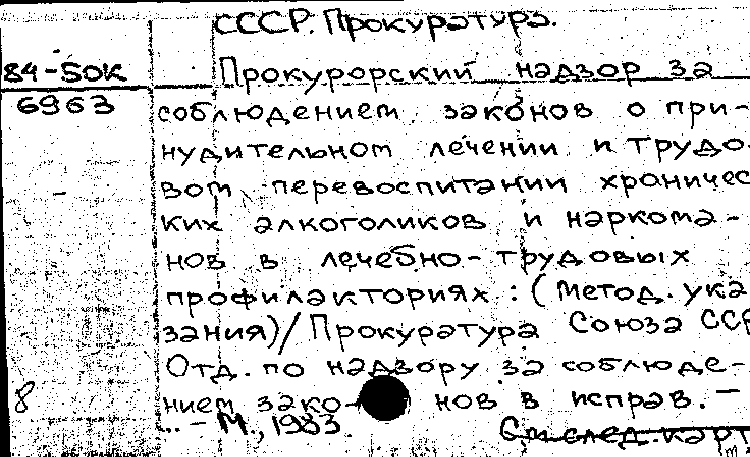 СССР. Прокуратура.
84-5ОК Прокурорский надзор за
6963 соблюдением законов о при-
нудительном лечении и трудо
вом перевоспитании хроничес
ких алкоголиков и наркома-
нов в лечебно-трудовых
профилакториях : (Метод. ука
зания)/Прокуратура Союза ССР
Отд. по надзору за соблюде-
8 нием зако- нов в исправ. –
.. – М., 1983.
См след. карт